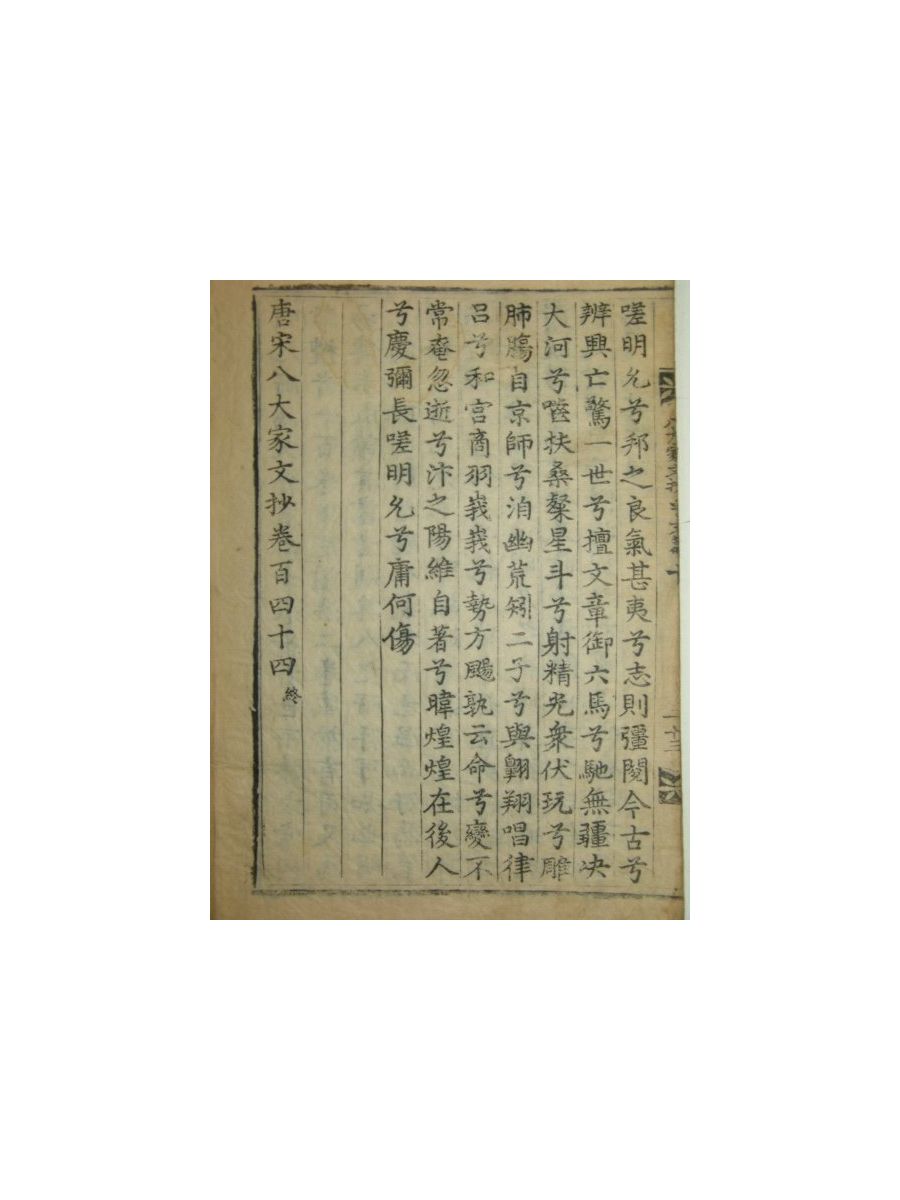 嗟明允兮邦之良氣甚夷兮志則彊閱今古兮
辨興亡驚一世兮擅文章御六馬兮馳無疆决
大河兮嚙扶桑粲星斗兮射精光衆伏玩兮雕
肺膓自京師兮洎幽荒矧二子兮與翺翔唱律
呂兮和宮商羽峩峩兮勢方颺孰云命兮變不
常奄忽逝兮汴之陽維自著兮暐煌煌在後人
兮慶彌長嗟明允兮庸何傷
唐宋八大家文抄卷百四十四
終